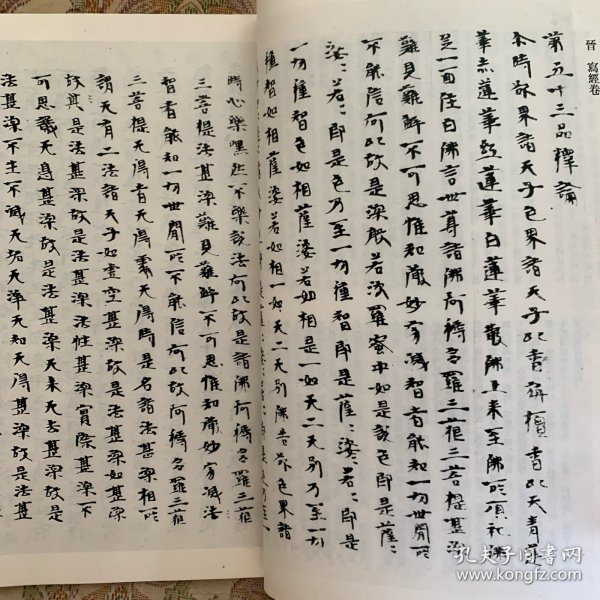 晉 寫經卷
第五十三品釋論
尒時欲界諸天子色界諸天子以 檀 以天青蓮
華赤蓮華紅蓮華白蓮華 散佛上来至佛所頂礼佛
足一面住白佛言世尊諸佛阿耨多羅三藐三菩提甚深
難見難解不可思惟知微妙寂滅智者能知一切世間所
不能信何以故是深般若波羅蜜中如是說色即是薩〻
婆〻若〻即是色乃至一切種智即是薩〻婆〻若〻即是
一切種智色如相薩婆若如相是一如无二无別乃至一切
種智如相薩婆若如相一如无二无別佛告 色界諸
時心樂嘿然不樂說法何以故是諸佛阿耨多羅三藐
三菩提法甚深難見難解不可思惟知微妙寂滅法
智者能知一切世間所不能信何以故阿耨多羅三藐
三菩提无得者无得處无得時是名諸法甚深相所
謂无有二法諸天子如虛空甚深故是法甚深如甚深
故 是法甚深法性甚深實際甚深不
可思議无邊甚深故是法甚深无来无去甚深故是
法甚深不生不滅无垢无淨无知无得甚深故是法甚
孔夫子旧书网
www.kongfz.com